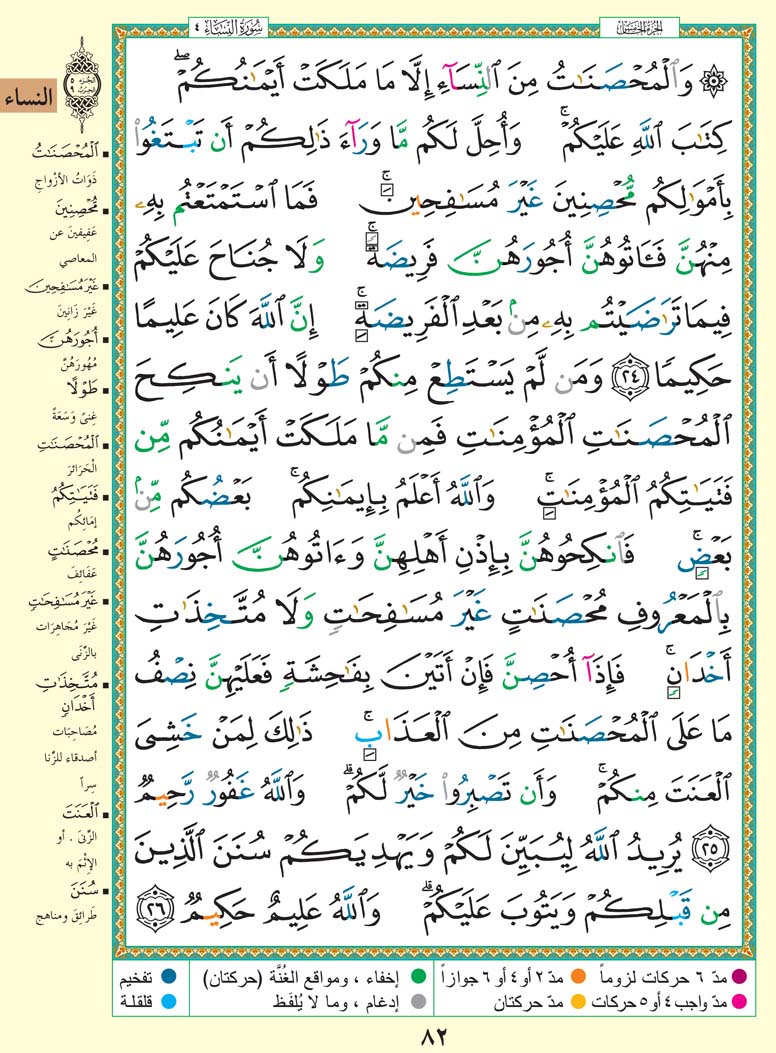 الجزء الخامس
سورة النساء ٤
۞ وَٱلْمُحْصَنَٰتُ مِنَ ٱلنِّسَآءِ إِلَّا مَا مَلَكَتْ أَيْمَٰنُكُمْ ۖ
كِتَٰبَ ٱللَّهِ عَلَيْكُمْ ۚ وَأُحِلَّ لَكُم مَّا وَرَآءَ ذَٰلِكُمْ أَن تَبْتَغُوا۟
بِأَمْوَٰلِكُم مُّحْصِنِينَ غَيْرَ مُسَٰفِحِينَ ۚ فَمَا ٱسْتَمْتَعْتُم بِهِۦ
مِنْهُنَّ فَـَٔاتُوهُنَّ أُجُورَهُنَّ فَرِيضَةً ۚ وَلَا جُنَاحَ عَلَيْكُمْ
فِيمَا تَرَٰضَيْتُم بِهِۦ مِنۢ بَعْدِ ٱلْفَرِيضَةِ ۚ إِنَّ ٱللَّهَ كَانَ عَلِيمًا
حَكِيمًا ٢٤ وَمَن لَّمْ يَسْتَطِعْ مِنكُمْ طَوْلًا أَن يَنكِحَ
ٱلْمُحْصَنَٰتِ ٱلْمُؤْمِنَٰتِ فَمِن مَّا مَلَكَتْ أَيْمَٰنُكُم مِّن
فَتَيَٰتِكُمُ ٱلْمُؤْمِنَٰتِ ۚ وَٱللَّهُ أَعْلَمُ بِإِيمَٰنِكُم ۚ بَعْضُكُم مِّنۢ
بَعْضٍ ۚ فَٱنكِحُوهُنَّ بِإِذْنِ أَهْلِهِنَّ وَءَاتُوهُنَّ أُجُورَهُنَّ
بِٱلْمَعْرُوفِ مُحْصَنَٰتٍ غَيْرَ مُسَٰفِحَٰتٍ وَلَا مُتَّخِذَٰتِ
أَخْدَانٍ ۚ فَإِذَآ أُحْصِنَّ فَإِنْ أَتَيْنَ بِفَٰحِشَةٍ فَعَلَيْهِنَّ نِصْفُ
مَا عَلَى ٱلْمُحْصَنَٰتِ مِنَ ٱلْعَذَابِ ۚ ذَٰلِكَ لِمَنْ خَشِىَ
ٱلْعَنَتَ مِنكُمْ ۚ وَأَن تَصْبِرُوا۟ خَيْرٌ لَّكُمْ ۗ وَٱللَّهُ غَفُورٌ رَّحِيمٌ
٢٥ يُرِيدُ ٱللَّهُ لِيُبَيِّنَ لَكُمْ وَيَهْدِيَكُمْ سُنَنَ ٱلَّذِينَ
مِن قَبْلِكُمْ وَيَتُوبَ عَلَيْكُمْ ۗ وَٱللَّهُ عَلِيمٌ حَكِيمٌ ٢٦
الجزء ٥
الحزب ٩
النساء
ٱلْمُحْصَنَٰتُ
ذَوَاتُ الأزواجِ
مُّحْصِنِينَ
عَفِيفِينَ عن
المعاصي
غَيْرَ مُسَٰفِحِينَ
غَيْرَ زَانِينَ
أُجُورَهُنَّ
مُهُورَهُنَّ
طَوْلًا
غِنىً وَسَعَةً
ٱلْمُحْصَنَٰتِ
الْحَرَائِرَ
فَتَيَٰتِكُمُ
إمَائِكُم
مُحْصَنَٰتٍ
عَفَائِفَ
غَيْرَ مُسَٰفِحَٰتٍ
غَيْرَ مُجَاهِرَاتٍ
بالزِّنَى
مُتَّخِذَٰتِ
أَخْدَانٍ
مُصَاحِبَات
أصدقاء للزّنا
سِراً
ٱلْعَنَتَ
الزّنَى . أو
الإِثْمَ به
سُنَنَ
طَرائِقَ ومناهج
مدّ ٦ حركات لزوماً
مدّ ٢ أو ٤ أو ٦ جوازاً
إخفاء ، ومواقع الغُنَّة (حركتان)
تفخيم
مدّ واجب ٤ أو ٥ حركات
مدّ حركتان
إدغام ، وما لا يُلفَظ
قلقلة
٨٢